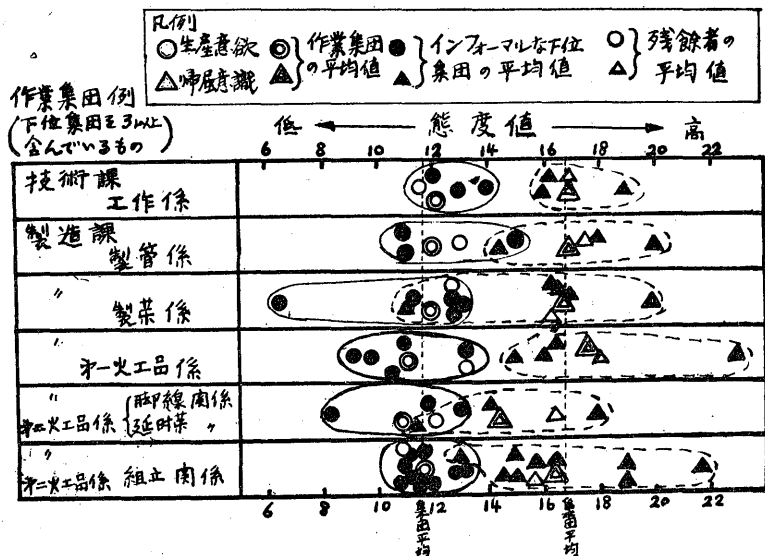 凡例
○生産意欲 ◎ 作業集団の平均値 ● インフォーマルな下位集団の平均値 ○ 残餘者の平均値
△帰属意識 ▲ ▲ △
作業集団例
(下位集団を3以上含んでいるもの)
低 ← 態度値 → 高
6 8 10 12 14 16 18 20 22
技術課
工作係
製造課
製管係
〃
製薬係
〃
第一火工品係
〃
第二火工品係 {脚線関係
延時薬 〃
〃
第二火工品係 組立関係
6 8 10 12 14 16 18 20 22
集団平均
集団平均